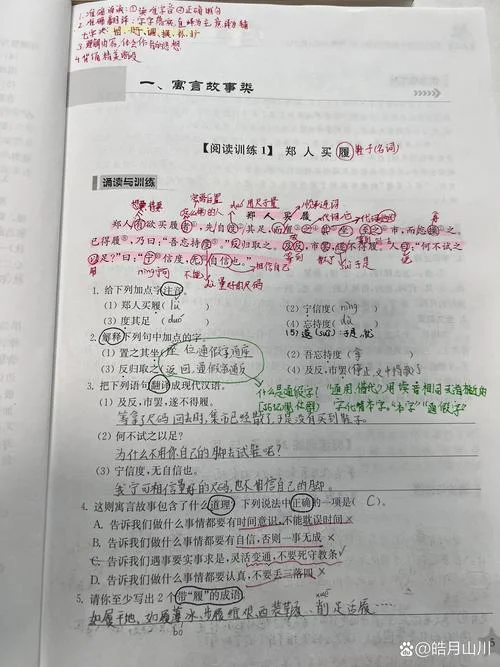 1.准确诵读:①读准字音②正确断句
2.准确翻译:字字落实,直译为主,意译为辅
七字决:留、
3.理解内容,体会作者的思想
4.背诵精美语段
一、寓言故事类
【阅读训练1】 郑人买履 鞋子(名词)
诵读与训练
郑人有欲买履者,先自度其足,而置之其坐,至之市,而忘操之。
已得履,乃曰:“吾忘持度。”反归取之。及反,市罢,遂不得履。人曰:“何不试之
以足?”曰:“宁信度,无自信也。”
相信自己
量好的尺码
1. 给下列加点字注音。
(1) 郑人买履( lǚ )
(2) 宁信度( nìng )
(3) 度其足( duó )
(4) 忘持度( dù )
2. 解释下列句中加点的字。
(1) 置之其坐( 座位,通假字通座 )
(2) 吾忘持度( )
(3) 反归取之( 返回,通假字通返 )
(4) 及反,市罢( 停止,文中指散了 )
3. 把下列语句翻译成现代汉语。
(1) 及反,市罢,遂不得履。
等拿了尺码回去时,集市已经散了,于是没有买到鞋子。
(2) 何不试之以足?
为什么不用你自己的脚去试鞋呢?
(3) 宁信度,无自信也。
我宁可相信量好的尺码,也不相信自己的脚。
什么是通假字?“通用、借代”,用读音相同或者相近的
字代替本字。“本字”“通假字”
4. 这则寓言故事包含了什么道理?下列说法中正确的一项是( C )。
A. 告诉我们做什么事情都要有时间意识,不能耽误时间
B. 告诉我们做什么事情都要有自信,否则一事无成
C. 告诉我们遇事要实事求是,灵活变通,不要死守教条
D. 告诉我们做什么事情都要认真,不要丢三落四
5. 请你至少写出2个带“履”的成语。
如履平地、如履薄冰、步履维艰、西装革履、削足适履……
bó
xuē
5
@皓月山川